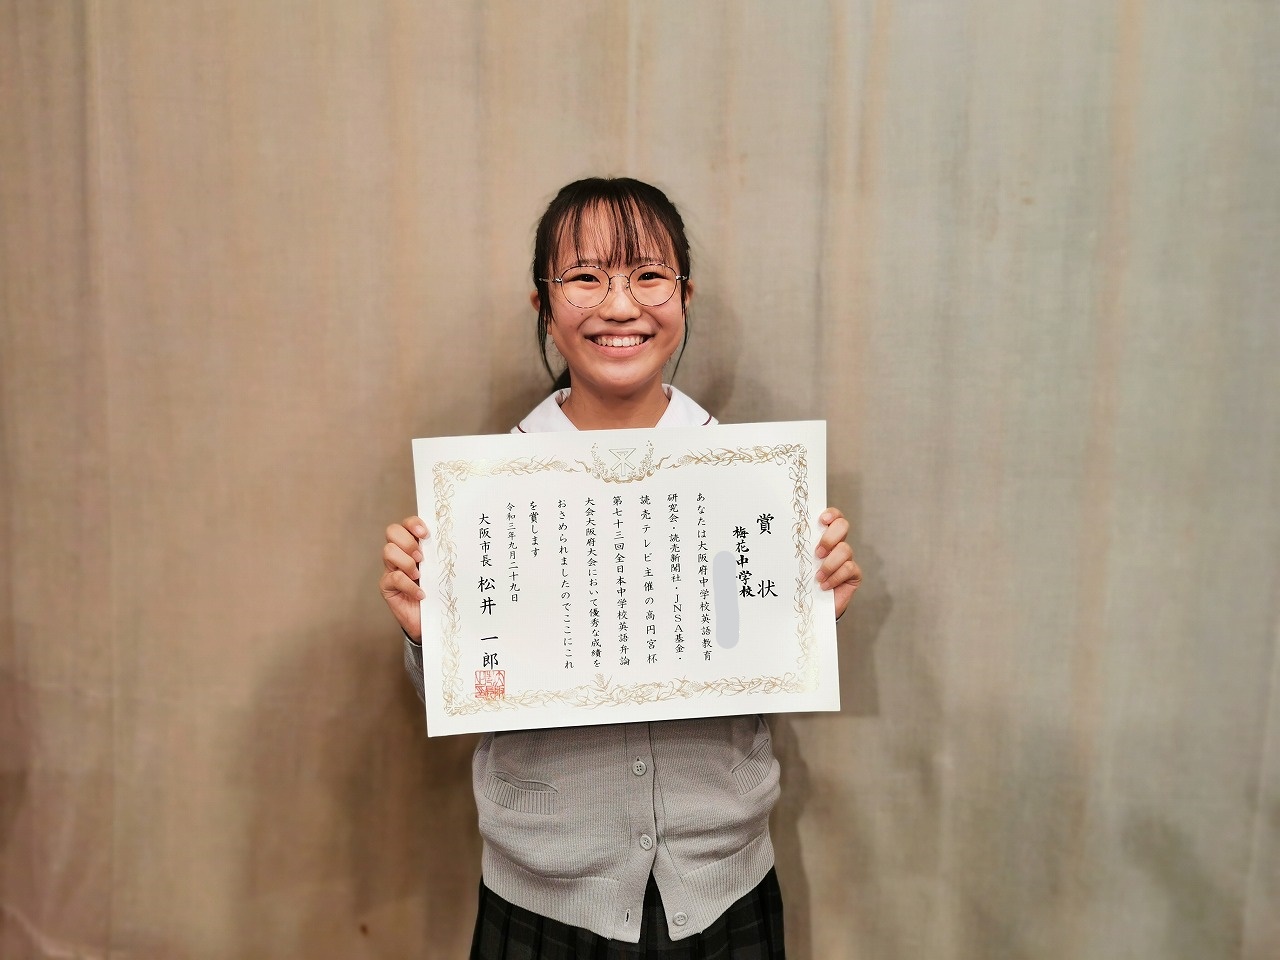 賞状
梅花中学校
あなたは大阪府中学校英語教育
研究会・読売新聞社・JNSA基金・
読売テレビ主催の高円宮杯
第七十三回全日本中学校英語弁論
大会大阪府大会において優秀な成績を
おさめられましたのでここにこれ
を賞します
令和三年九月二十九日
大阪市長 松井一郎